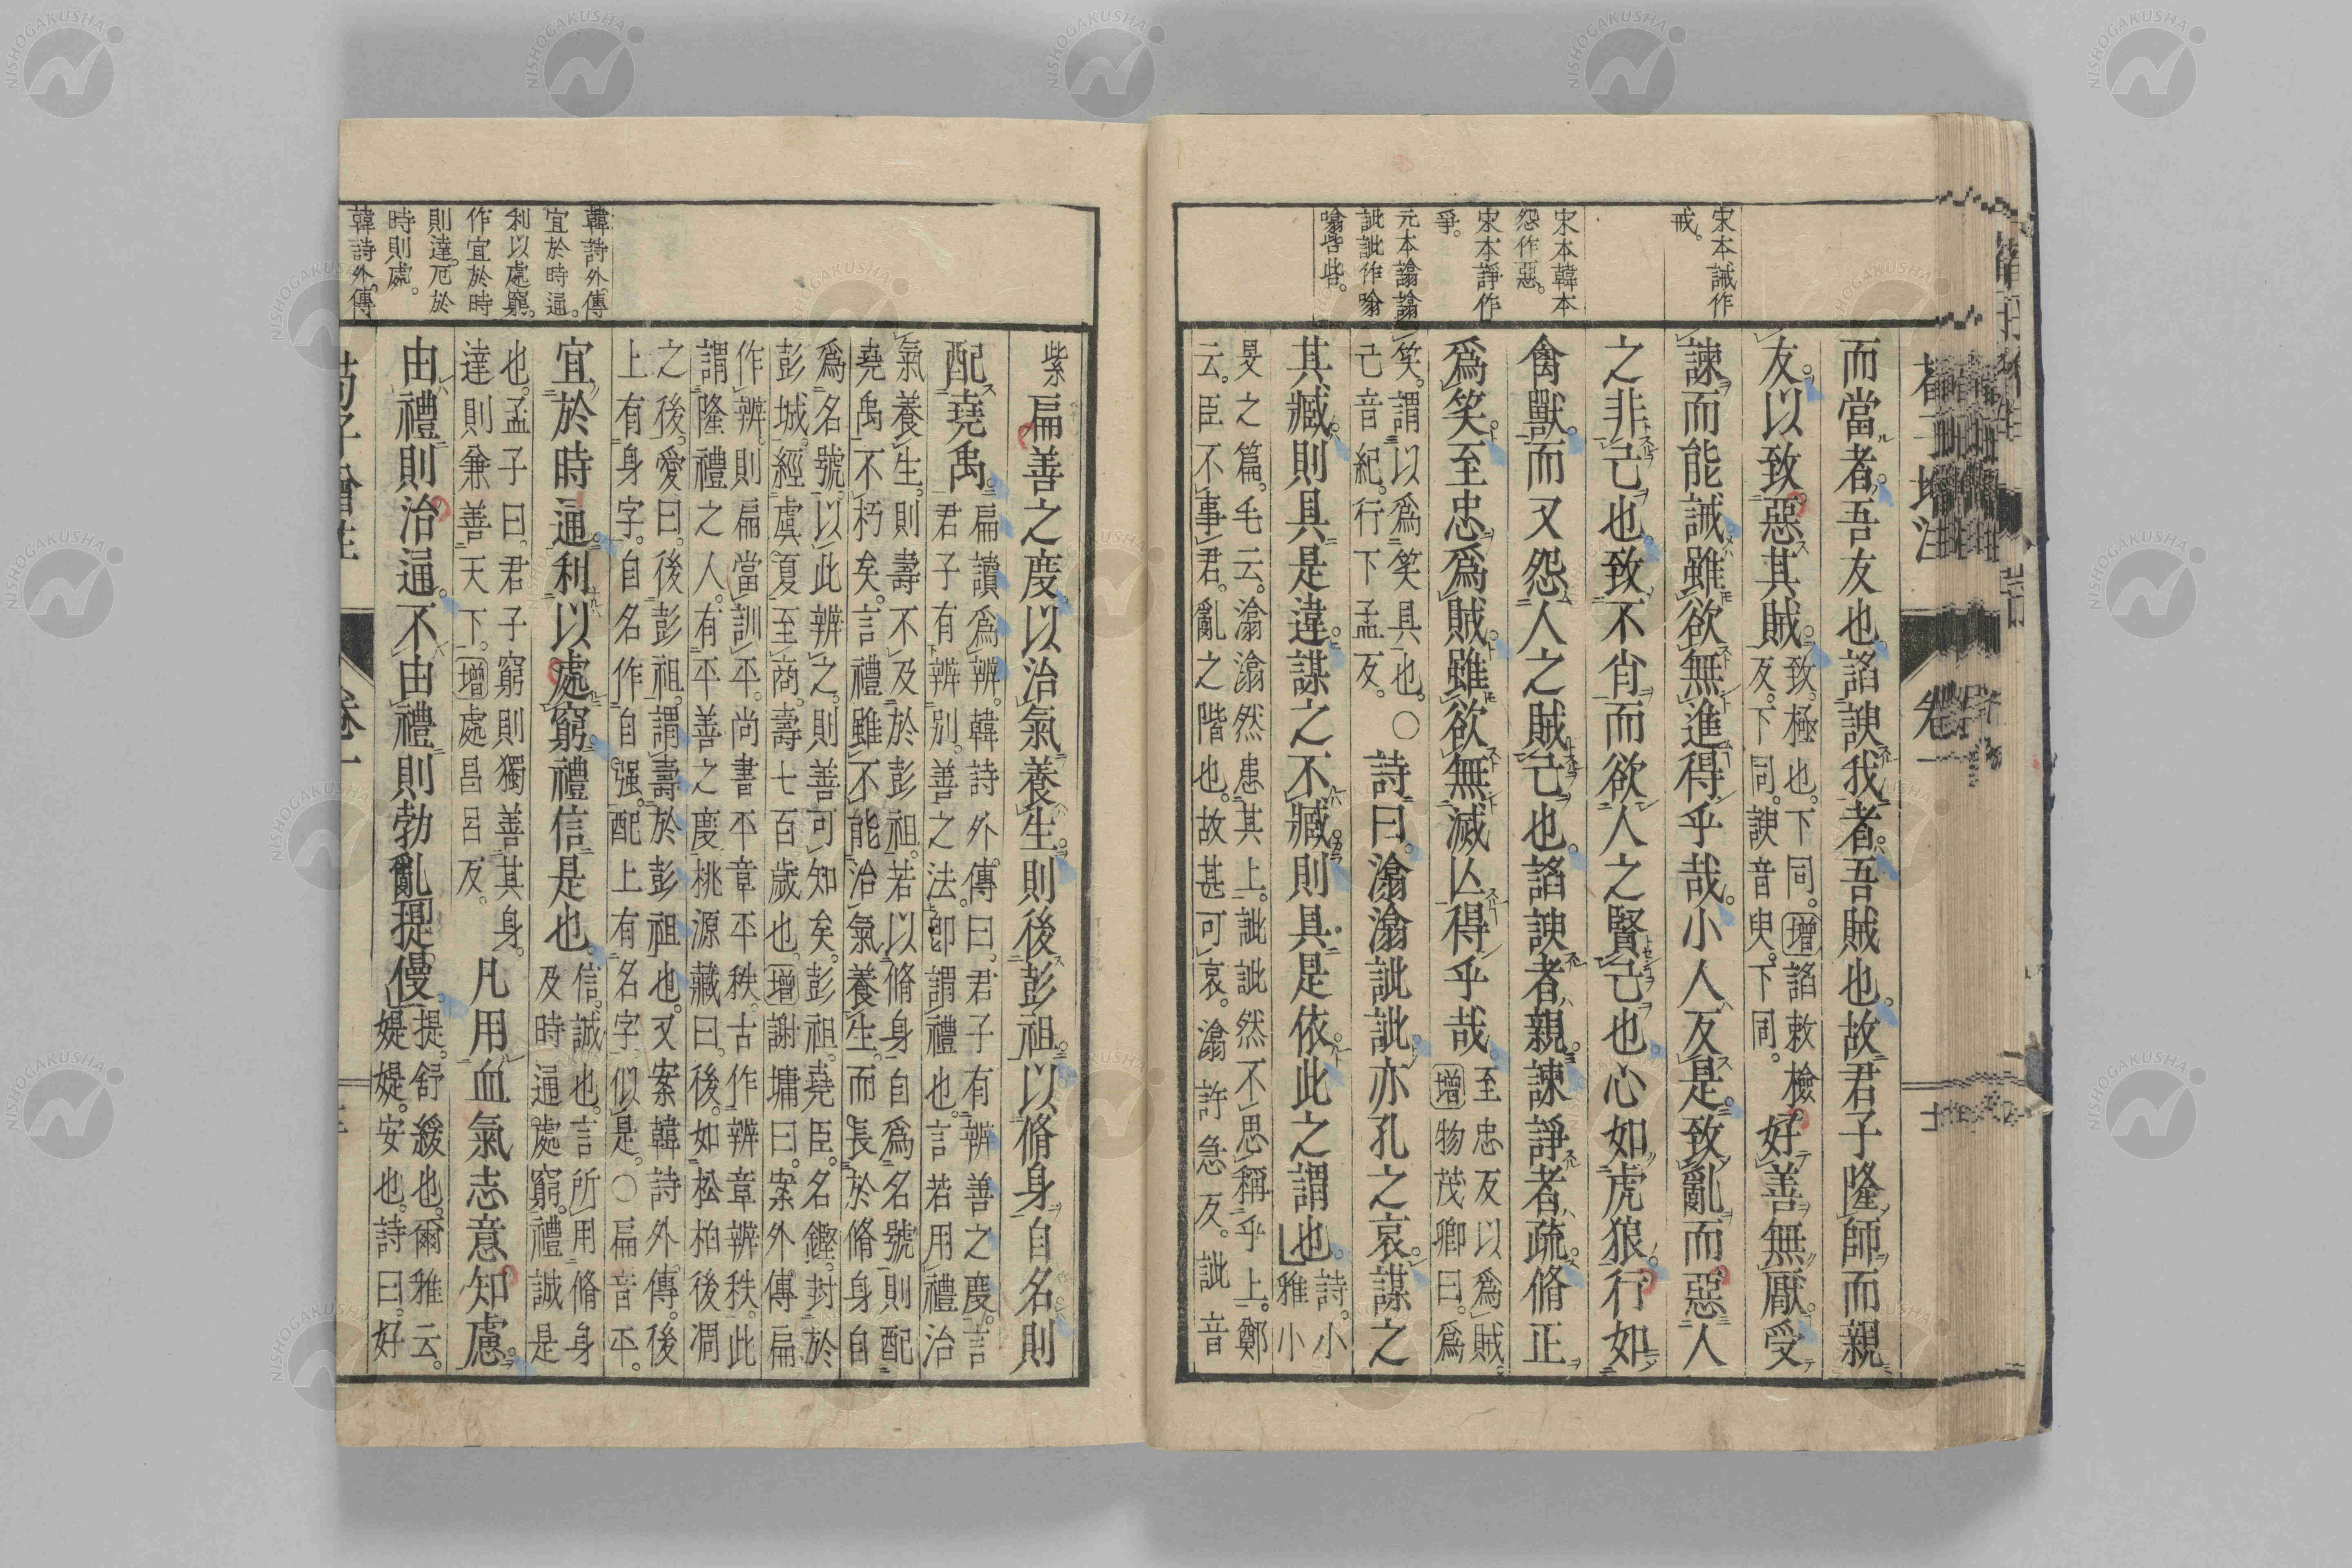 宋本誡作
戒。
宋本韓本
怨作惡。
宋本諍作
爭。
元本諭諭
訿訿作噏
噏呰呰。
而當者。吾友也。諂諛我者。吾賊也。故君子隆師而親
友。以致惡其賊。致。極也。下同。增諂敕檢
反。下同。諛音臾。下同。好善無厭。受
諫而能誡。雖欲無進。得乎哉。小人反是。致亂而惡人
之非己也。致不肖而欲人之賢己也。心如虎狼。行如
禽獸。而又怨人之賊己也。諂諛者親。諫諍者疏。脩正
爲笑。至忠爲賊。雖欲無滅亾。得乎哉。至忠反以爲賊。
增物茂卿曰。爲
笑。謂以爲笑具也。〇
己音紀。行下孟反。詩曰。潝潝訿訿。亦孔之哀。謀之
其臧。則具是違。謀之不臧。則具是依。此之謂也。詩。小
雅小
旻之篇。毛云。潝潝然患其上。訿訿然不思稱乎上。鄭
云。臣不事君。亂之階也。故甚可哀。潝許急反。訿音
紫。扁善之度。以治氣養生。則後彭祖。以脩身自名。則
配堯禹。扁讀爲辨。韓詩外傳曰。君子有辨善之度。言
君子有辨別。善之法。卽謂禮也。言若用禮治
氣養生。則壽不及於彭祖。若以脩身自爲名號。則配
堯禹不朽矣。言禮雖不能治氣養生。而長於脩身自
爲名號。以此辨之。則善可知矣。彭祖。堯臣。名鏗。封於
彭城。經虞夏至商。壽七百歲也。增謝墉曰。案外傳扁
作辨。則扁當訓平。尚書平章平秩。古作辨章辨秩。此
謂隆禮之人。有平善之度。桃源藏曰。後。如松柏後凋
之後。愛曰。後彭祖。謂壽於彭祖也。又案韓詩外傳。後
上有身字。自名作自强。配上有名字。似是。〇扁音平。
宜於時通。利以處窮。禮信是也。信。誠也。言所用脩身
及時通處窮。禮誠是
也。孟子曰。君子窮則獨善其身。
達則兼善天下。增處昌呂反。凡用血氣志意知慮。
由禮則治通。不由禮則勃亂提僈。提。舒緩也。爾雅云。
媞媞。安也。詩曰。好
韓詩外傳
宜於時通。
利以處窮。
作宜於時
則達。厄於
時則處。
韓詩外傳